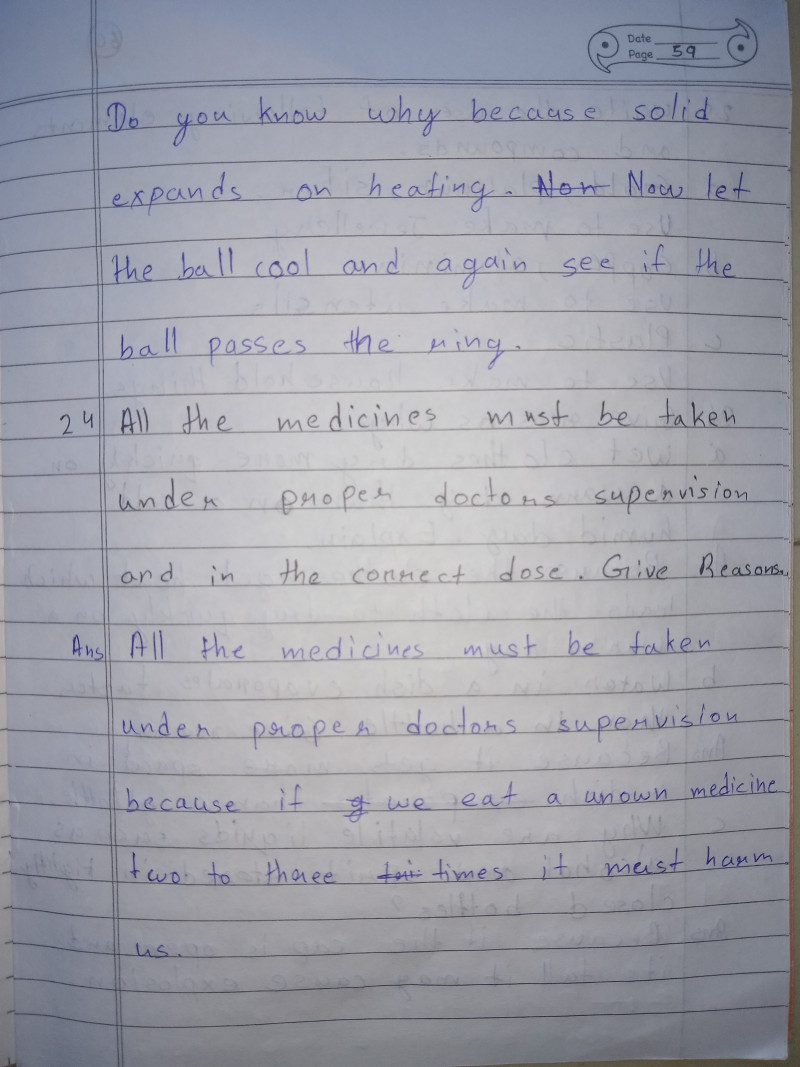 Date
Page 59
Do you know why because solid
expands on heating. Non Now let
the ball cool and again see if the
ball passes the ring.
24 All the medicines must be taken
under proper doctors supervision
and in the correct dose. Give Reasons.
Ans All the medicines must be taken
under proper doctors supervision
because if we eat a unown medicine
two to three times it must harm
us.